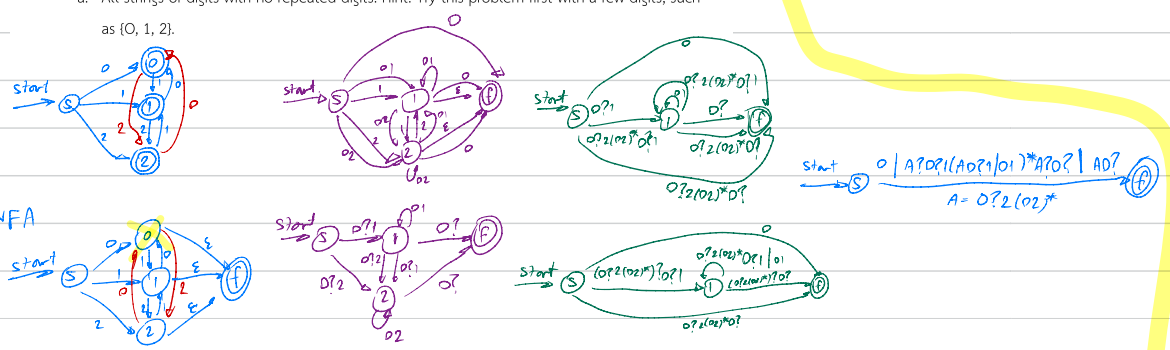 a. All strings of digits with no repeated digits. Hint: Try this problem first with a few digits, such
as {0, 1, 2}.
start
S
0
1
2
0
1
2
2
0
start
S
0
01
1
2
02
1
2
01
02
0
ε
f
start
S
0
0?1
0?2(02)*0?1
01
1
0?2(02)*0?1
0?
0?2(02)*0?
0?2(02)*0?
f
start
S
0 | A?0?1(A0?1|01)*A?0? | A0?
A = 0?2(02)*
f
NFA
start
S
0
1
2
0
1
2
0
2
ε
ε
ε
f
start
S
0?1
0?2
01
1
0?2
0?1
2
02
0?
0?
f
start
S
0
(0?2(02)*)?0?1
0?2(02)*0?1 | 01
1
(0?2(02)*)?0?
0?2(02)*0?
f